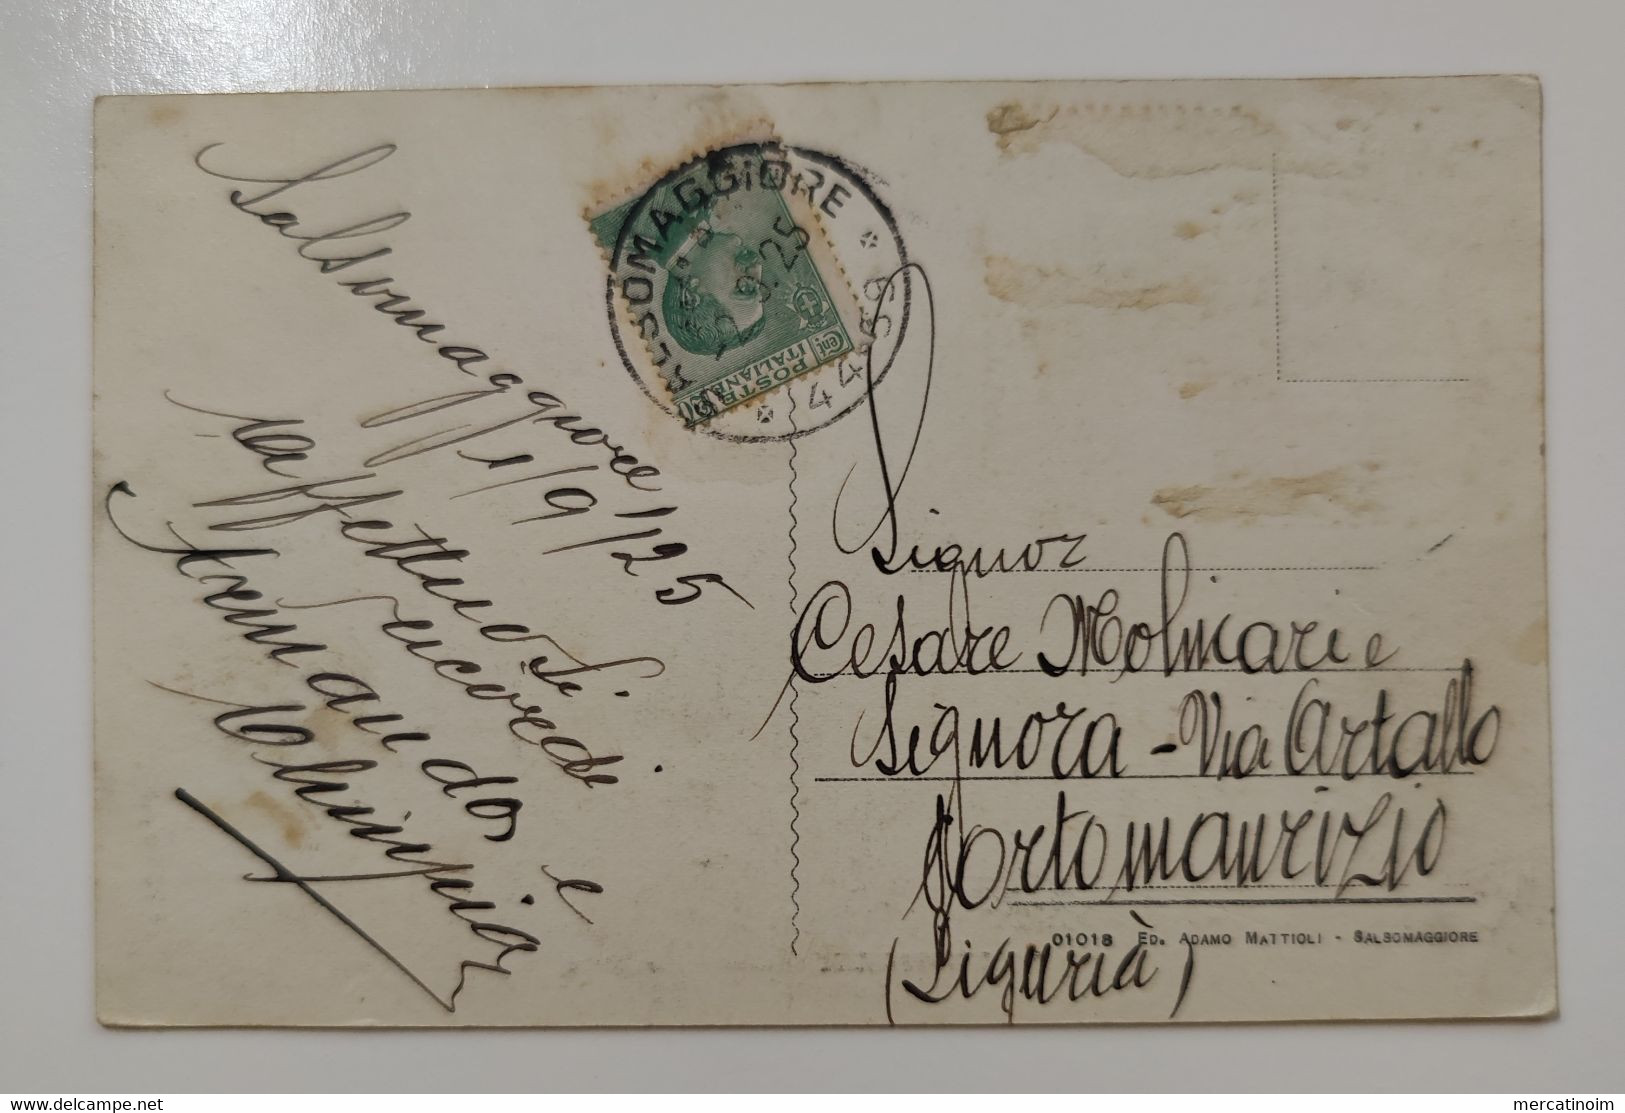 Salsomaggiore
1/9/1925
affettuosi
ricordi
Armando e
Olimpia
SALSOMAGGIORE
44-59
9.25
POSTE
ITALIANE
Cent.
Signor
Cesare Molinari e
Signora - Via Artallo
Portomaurizio
(Liguria)
01018 ED. ADAMO MATTIOLI - SALSOMAGGIORE
mercatinoim
delcampe.net